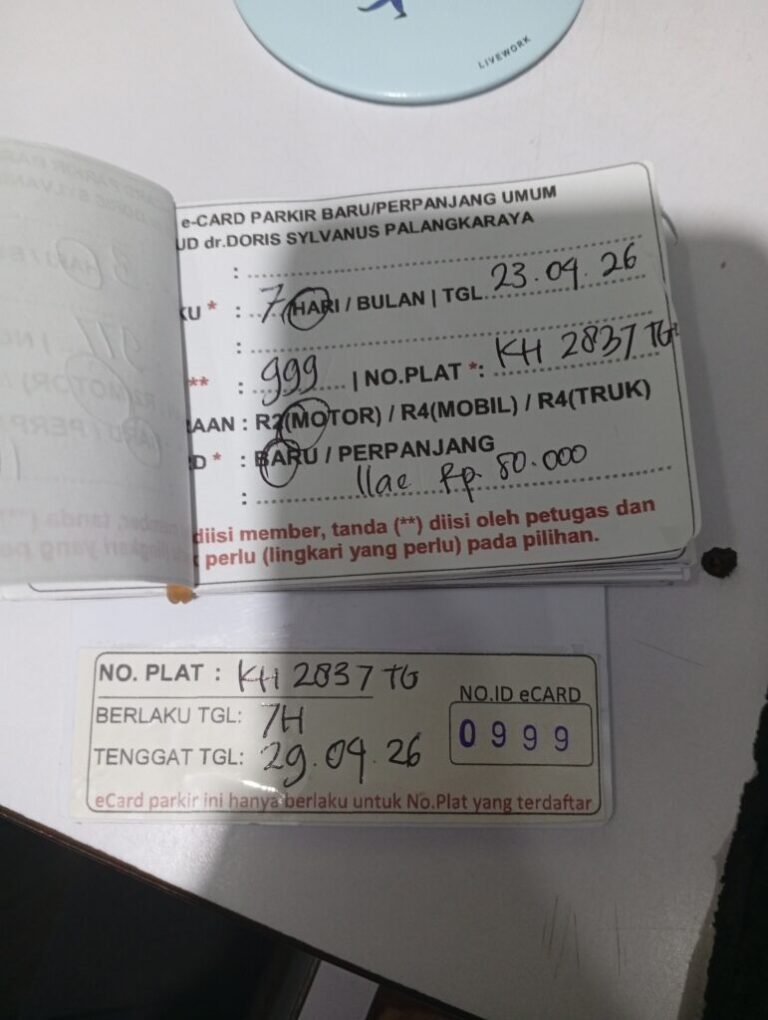 LIVEWORK
e-CARD PARKIR BARU/PERPANJANG UMUM
UD dr.DORIS SYLVANUS PALANGKARAYA
:
KU * : 7 HARI / BULAN | TGL. 23.04.26
:
** : 999 | NO.PLAT *: KH 2837 TG
RAAN : R2(MOTOR) / R4(MOBIL) / R4(TRUK)
D * : BARU / PERPANJANG
: Rp. 80.000
diisi member, tanda (**) diisi oleh petugas dan
perlu (lingkari yang perlu) pada pilihan.
NO. PLAT : KH 2837 TG
BERLAKU TGL: 7H
TENGGAT TGL: 29.04.26
NO.ID eCARD
0999
eCard parkir ini hanya berlaku untuk No.Plat yang terdaftar